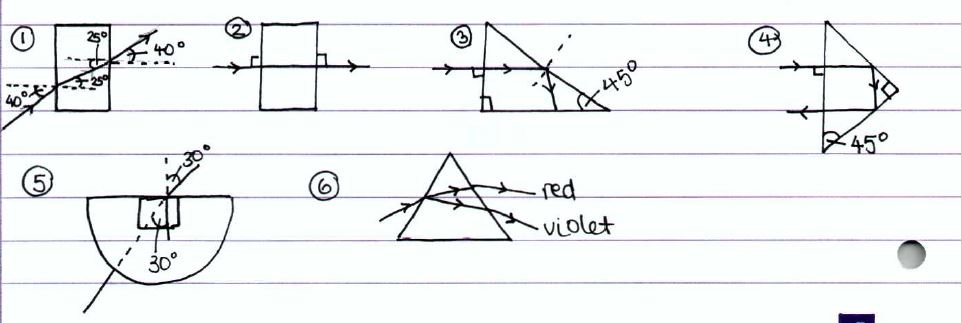 ① 25° 40° 25° 40°
②
③ 45°
④ 45°
⑤ 30° 30°
⑥ red violet